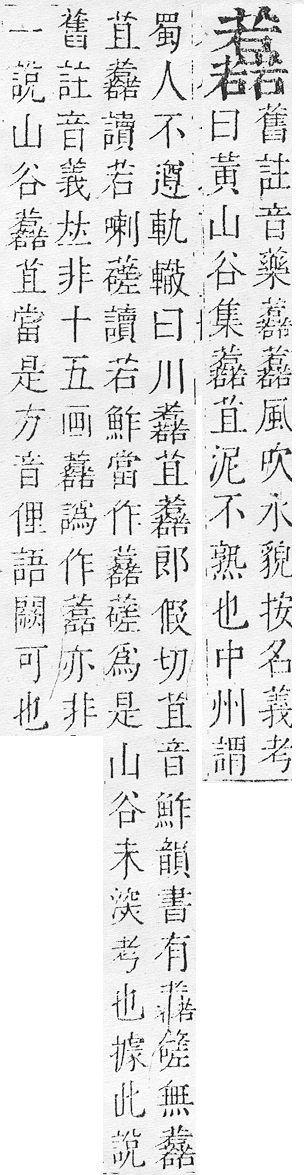 舊註音藥藞藞風吹水貌按名義考
曰黃山谷集藞苴泥不熟也中州謂
蜀人不遵軌轍曰川藞苴藞郎假切苴音鮓韻書有藞䕢無藞
苴藞讀若喇䕢讀若鮓當作藞䕢爲是山谷未深考也據此說
舊註音義𠀤非十五画藞譌作藞亦非
一說山谷藞苴當是方音俚語闕可也